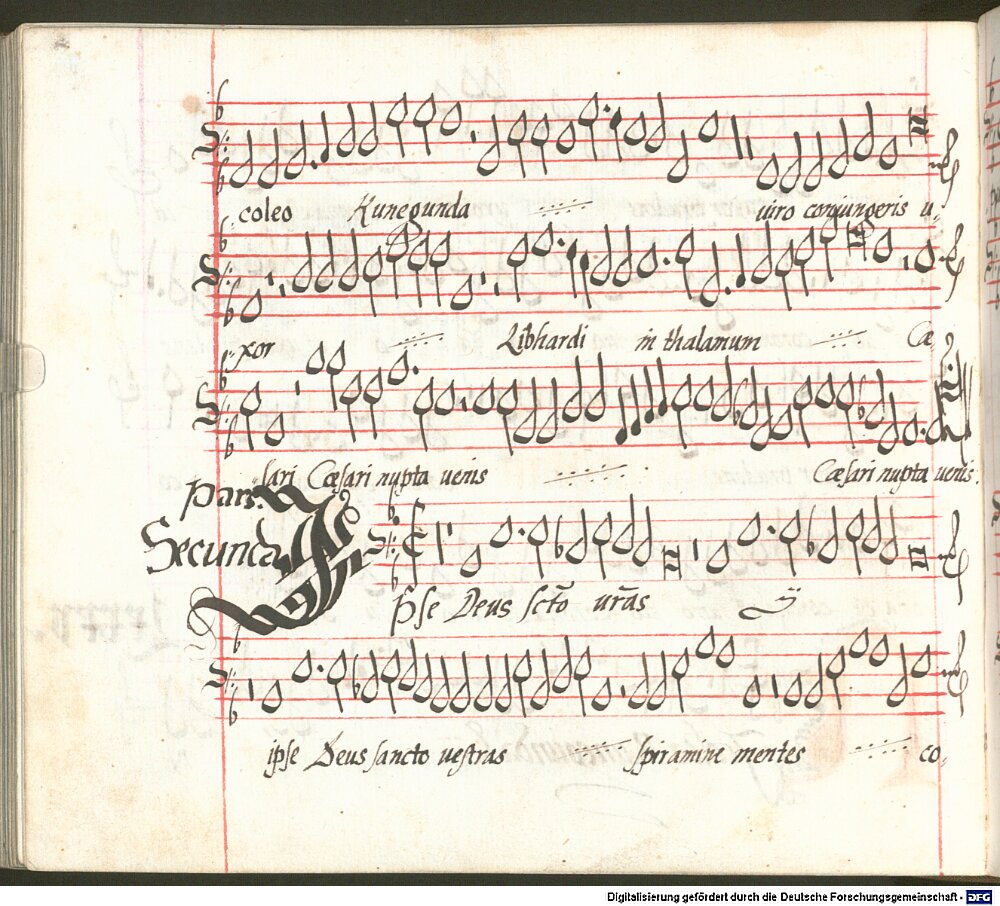 coleo Kunegunda uiro coniungeris u-
xor Libhardi in thalamum Cæ-
sari Cæsari nupta uenis Cæsari nupta uenis.
Pars.
Secunda
Ipse Deus sctõ urãs ij
ipse Deus sancto uestras Spiramine mentes co-
Digitalisierung gefördert durch die Deutsche Forschungsgemeinschaft - DFG